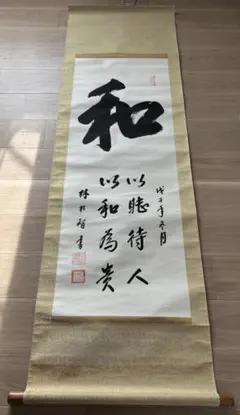 和
戊子年冬月
以誠待人
以和為貴
林 書